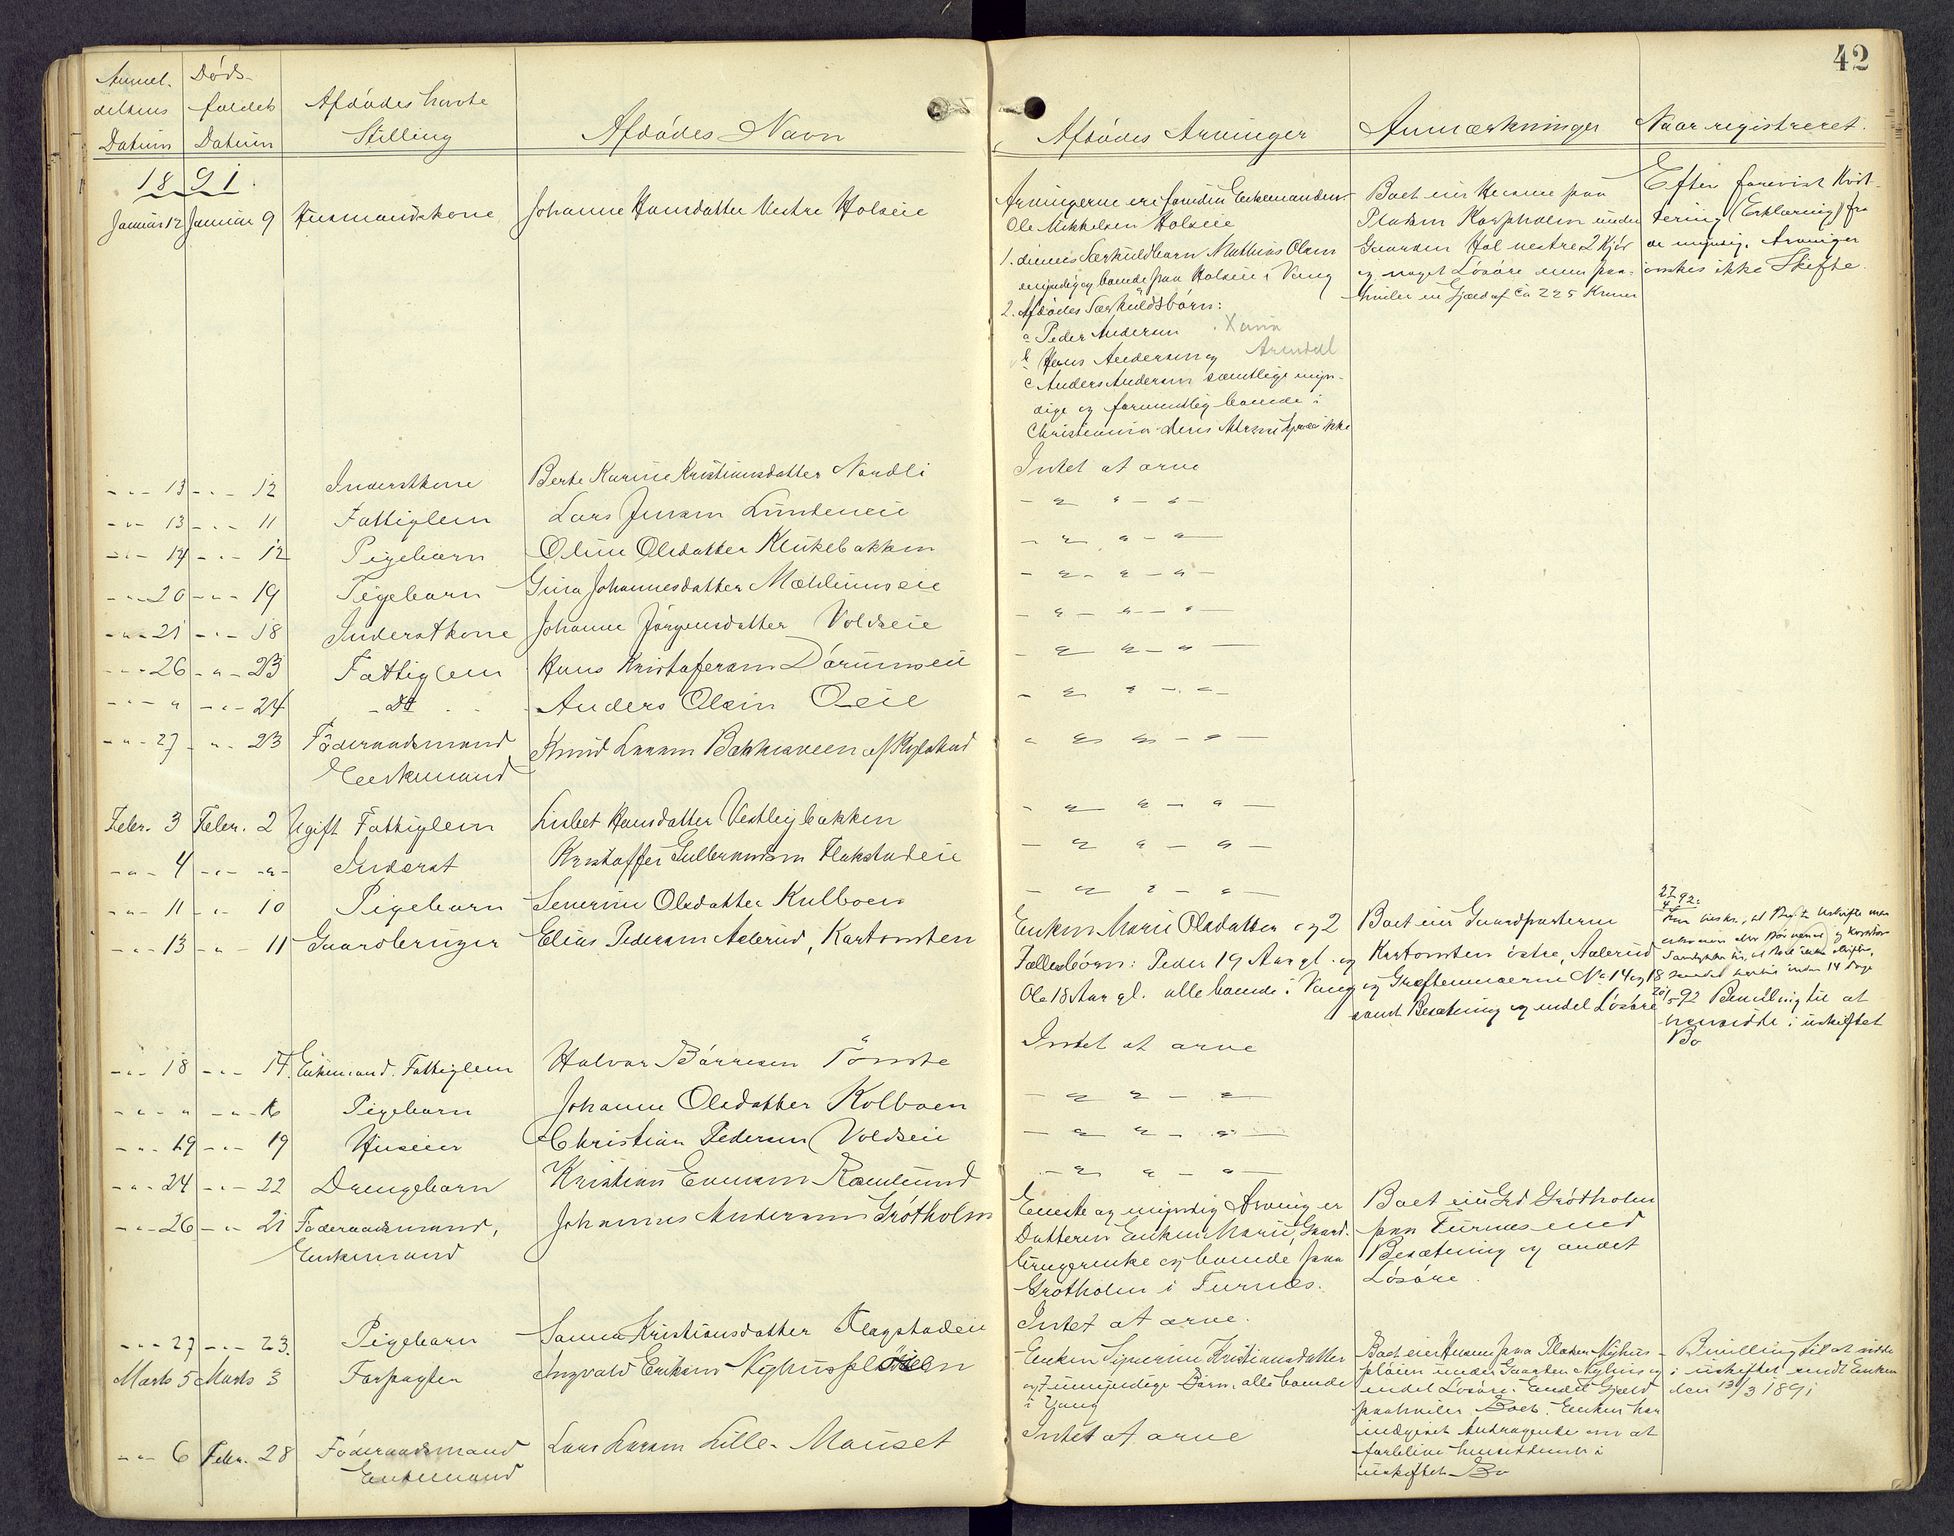 42
Anmel-
delsens
Datum
Døds-
faldets
Datum
Afdødes havte
Stilling
Afdødes Navn
Afdødes Arvinger
Anmærkninger
Naar registreret.
1891.
Januar 12 Januar 9 Husmandskone Johanne Hansdatter Vestre Holseie
Arvingerne er foruden Enkemanden
Ole Mikkelsen Holseie
1. dennes Særkuldbarn Mathias Olsen
myndig og boende paa Holseie i Vang
2. Afdødes Særkuldsbørn:
a Peder Andersen Xania
b Hans Andersen og Arendal
c Anders Andersen samtlige myn-
dige og formentlig boende i
Christiania deres Adresse ikke
Boet eier Husene paa
Pladsen under
Gaarden Hol vestre 2 Kjør
og noget Løsøre men paa-
hviler en Gjæld af ca 225 Kroner
Efter forevist Kvit-
tering (Erklæring) fra
de myndige Arvinger
ønskes ikke Skifte.
-"- 13 -"- 12 Inderstkone Berte Karine Kristiansdatter Nordli Intet at arve
-"- 13 -"- 11 Fattiglem Lars Jensen Lundeneie - " " - " -
-"- 14 -"- 12 Pigebarn Oline Olsdatter Klukebakken - " - " - " -
-"- 20 -"- 19 Pigebarn Gina Johannesdatter Mæhlumseie - " - " - " -
-"- 21 -"- 18 Inderstkone Johanne Jørgensdatter Voldseie - " - " - " -
-"- 26 -"- 23 Fattiglem Hans Kristofersen Dørumseie - " " - " -
-"- " -"- 24 - Do - Anders Olsen Oeie - " " - " -
-"- 27 -"- 23 Føderaadsmand Knud Larsen Bakkesveen af - " " - " -
Enkemand
Febr. 3 Febr. 2 Ugift Fattiglem Lisbet Hansdatter Vestlejbakken - " " - " -
-"- 4 -"- -"- Inderst Kristoffer Gulbrandsen Flakstadeie - " " - " -
-"- 11 -"- 10 Pigebarn Severine Olsdatter Kulboen - " " - " -
-"- 13 -"- 11 Gaardbruger Elias Pedersen Aalerud, Kartomten
Enken Marie Olsdatter og 2
Fællesbørn: Peder 19 Aar gl. og
Ole 18 Aar gl. alle boende i Vang
Boet eier Gaardparterne
Kartomten østre, Aalerud
og Græftemoaerne No 14 og 18
samt Besætning og endel Løsøre
27/4 92.
14 Dage
20/5 92 Bevilling til at
hensidde i uskiftet
Bo
-"- 18 -"- 17. Enkemand. Fattiglem Halvor Børresen Tømte Intet at arve
-"- " -"- 16 Pigebarn Johanne Olsdatter Kolboen - " " - " -
-"- 19 -"- 19 Huseier Christian Pedersen Voldseie - " " - " -
-"- 24 -"- 22 Drengebarn Kristian Evensen Ramlund - " " - " -
-"- 26 -"- 21 Føderaadsmand, Johannes Andersen Grøtholm
Enkemand
Eneste og myndig Arving er
Datteren Enken Marie, Gaard-
brugerenke og boende paa
Grøtholm i Furnæs.
Boet eier Grd Grøtholm
paa Furnæs med
Besætning og andet
Løsøre.
-"- 27 -"- 23. Pigebarn Sanna Kristiansdatter Flagstadeie Intet at arve.
Marts 5 Marts 3 Forpagter Ingvald Eriksen Nyhuspløien
Enken Signerine Kristiansdatter
og 7 umyndige Børn, alle boende
i Vang
Boet eier Husene paa Pladsen Nyhus-
pløien under Gaarden Nyhus og
endel Løsøre. Endel Gjæld
paahviler Boet. Enken har
indgivet Andragende om at
forblive hensiddende i
uskiftet Bo
Bevilling til at sidde
i uskiftet meddt Enken
den 13/3 1891
-"- 6 Febr. 28 Føderaadsmand Lars Larsen Lille-Mauset Intet at arve
Enkemand